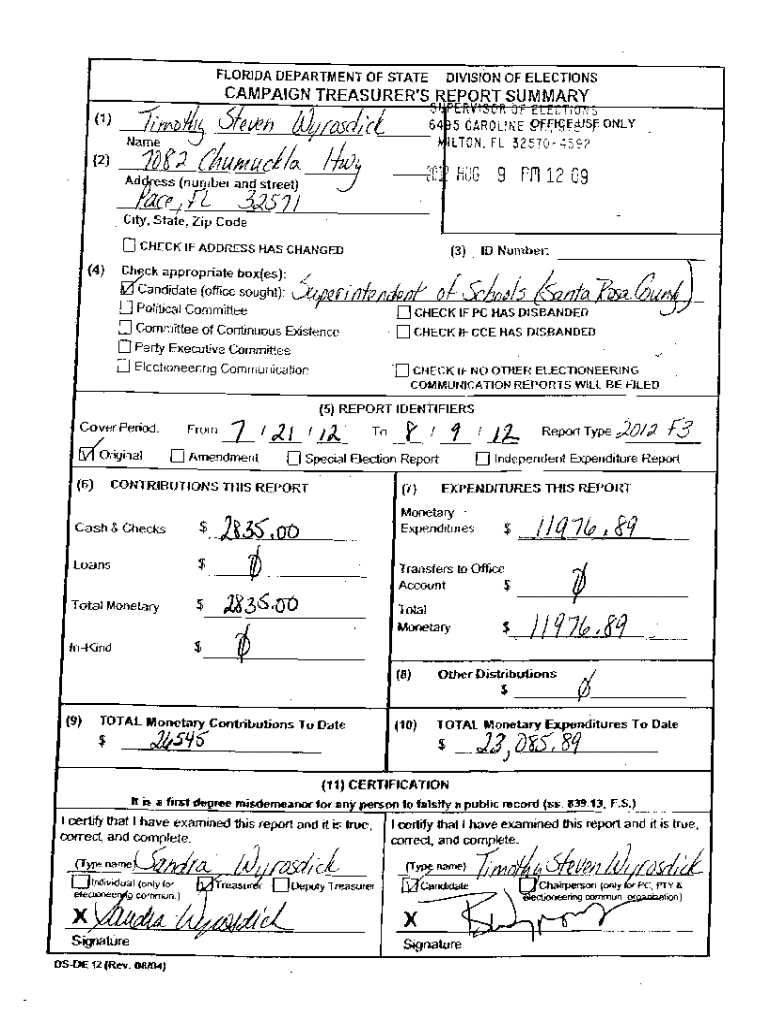 FLORIDA DEPARTMENT OF STATE DIVISION OF ELECTIONS
CAMPAIGN TREASURER'S REPORT SUMMARY
(1) Timothy Steven Wyrosdick
Name
SUPERVISOR OF ELECTIONS
6495 CAROLINE OFFICE USE ONLY
MILTON, FL 32570-4592
(2) 7082 Chumuckla Hwy
Address (number and street)
AUG 9 PM 12 09
Pace, FL 32571
City, State, Zip Code
☐ CHECK IF ADDRESS HAS CHANGED (3) ID Number:
(4) Check appropriate box(es):
☑ Candidate (office sought): Superintendent of Schools (Santa Rosa County)
☐ Political Committee ☐ CHECK IF PC HAS DISBANDED
☐ Committee of Continuous Existence ☐ CHECK IF CCE HAS DISBANDED
☐ Party Executive Committee
☐ Electioneering Communication ☐ CHECK IF NO OTHER ELECTIONEERING
COMMUNICATION REPORTS WILL BE FILED
(5) REPORT IDENTIFIERS
Cover Period. From 7 / 21 / 12 To 8 / 9 / 12 Report Type 2012 F3
☑ Original ☐ Amendment ☐ Special Election Report ☐ Independent Expenditure Report
(6) CONTRIBUTIONS THIS REPORT
Cash & Checks $ 2835.00
Loans $ 0
Total Monetary $ 2835.00
In-Kind $ 0
(7) EXPENDITURES THIS REPORT
Monetary
Expenditures $ 11976.89
Transfers to Office
Account $ 0
Total
Monetary $ 11976.89
(8) Other Distributions
$ 0
(9) TOTAL Monetary Contributions To Date
$ 26545
(10) TOTAL Monetary Expenditures To Date
$ 23,085.89
(11) CERTIFICATION
It is a first degree misdemeanor for any person to falsify a public record (ss. 839.13, F.S.)
I certify that I have examined this report and it is true,
correct, and complete.
(Type name) Sandra Wyrosdick
☐ Individual (only for ☑ Treasurer ☐ Deputy Treasurer
electioneering commun.)
X Sandra Wyrosdick
Signature
I certify that I have examined this report and it is true,
correct, and complete.
(Type name) Timothy Steven Wyrosdick
☑ Candidate ☐ Chairperson (only for PC, PTY &
electioneering commun. organization)
X
Signature
DS-DE 12 (Rev. 08/04)